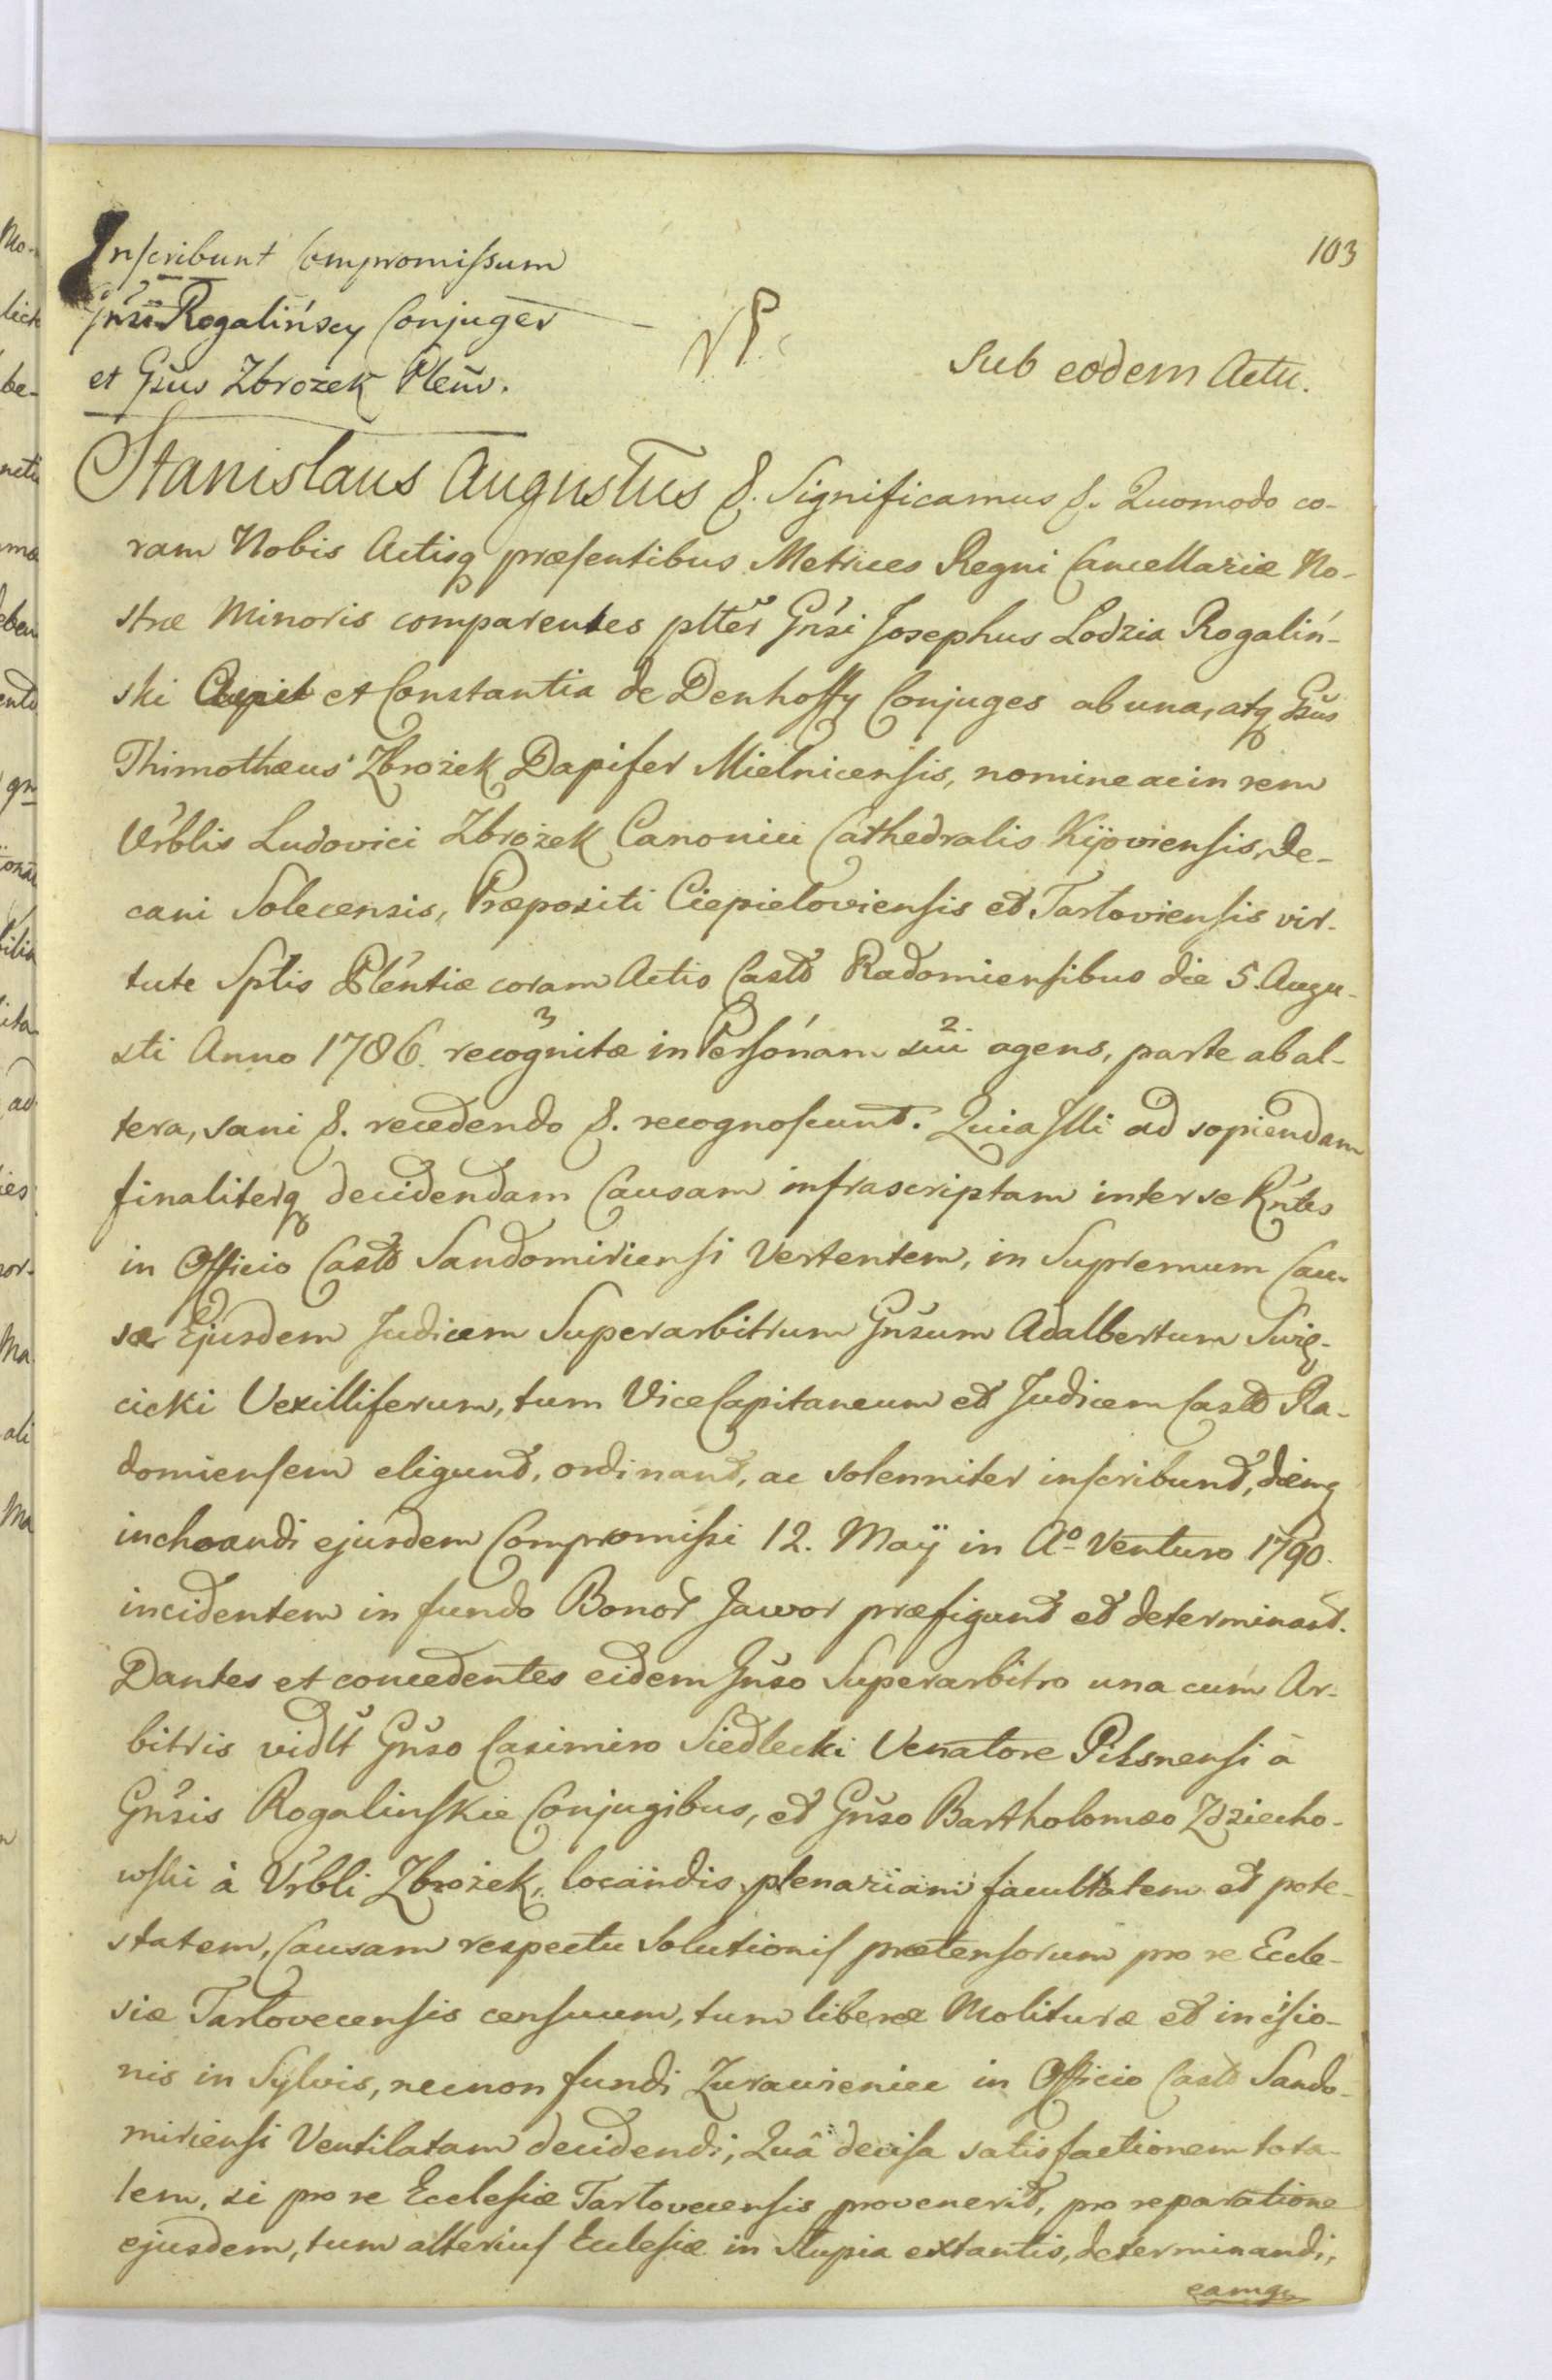 103
Inscribunt Compromissum
Gnsi Rogalińscy Conjuges
et Gsus Zbrozek Pleńs.
Sub eodem Actu.
Stanislaus Augustus &. Significamus &. Quomodo co-
ram Nobis Actisq præsentibus Metrices Regni Cancellariæ No-
stræ Minoris comparentes pltěr Gnsi Josephus Lodzia Rogaliń-
ski et Constantia de Denhoffy Conjuges ab una, atq Gsus
Thimothæus Zbrożek Dapifer Mielnicensis, nomine ac in rem
Vrblis Ludovici Zbrożek Canonici Cathedralis Kijoviensis, De-
cani Solecensis, Præpositi Ciepieloviensis et Tarloviensis vir-
tute Sptis Plentiæ coram Actis Castr Radomiensibus die 5. Augu-
sti Anno 1786. recognitæ in Personam sui agens, parte ab al-
tera, sani &. recedendo &. recognoscunt. Quia Illi ad sopiendam
finaliterq decidendam Causam infrascriptam inter se Rntes
in Officio Castr Sandomiriensi Vertentem, in Supremum Cau-
sæ Ejusdem Judicem Superarbitrum Gnsum Adalbertum Swię-
cicki Vexilliferum, tum Vice Capitaneum et Judicem Castr Ra-
domiensem eligunt, ordinant, ac solenniter inscribunt, diemq
inchoandi ejusdem Compromissi 12. Maÿ in Aº Venturo 1790.
incidentem in fundo Bonor Jawor præfigunt et determinant.
Dantes et concedentes eidem Gnso Superarbitro una cum Ar-
bitris vidlt Gnso Casimiro Siedlecki Venatore Pilsnensi à
Gnsis Rogalinskie Conjugibus, et Gnso Bartholomæo Zdziecho-
wski à Vrbli Zbrożek, locandis, plenariam facultatem et pote-
statem, Causam respectu Solutionis prætensorum pro re Eccle-
siæ Tarlovecensis censuum, tum liberæ Molituræ et incisio-
nis in Sylvis, necnon fundi Zurawieniec in Officio Castr Sando-
miriensi Ventilatam decidendi; Quâ decisa satisfactionem tota-
lem, si pro re Ecclesiæ Tarlovecensis provenerit, pro reparatione
ejusdem, tum alterius Ecclesiæ in Słupia extantis, determinandi,
eamq